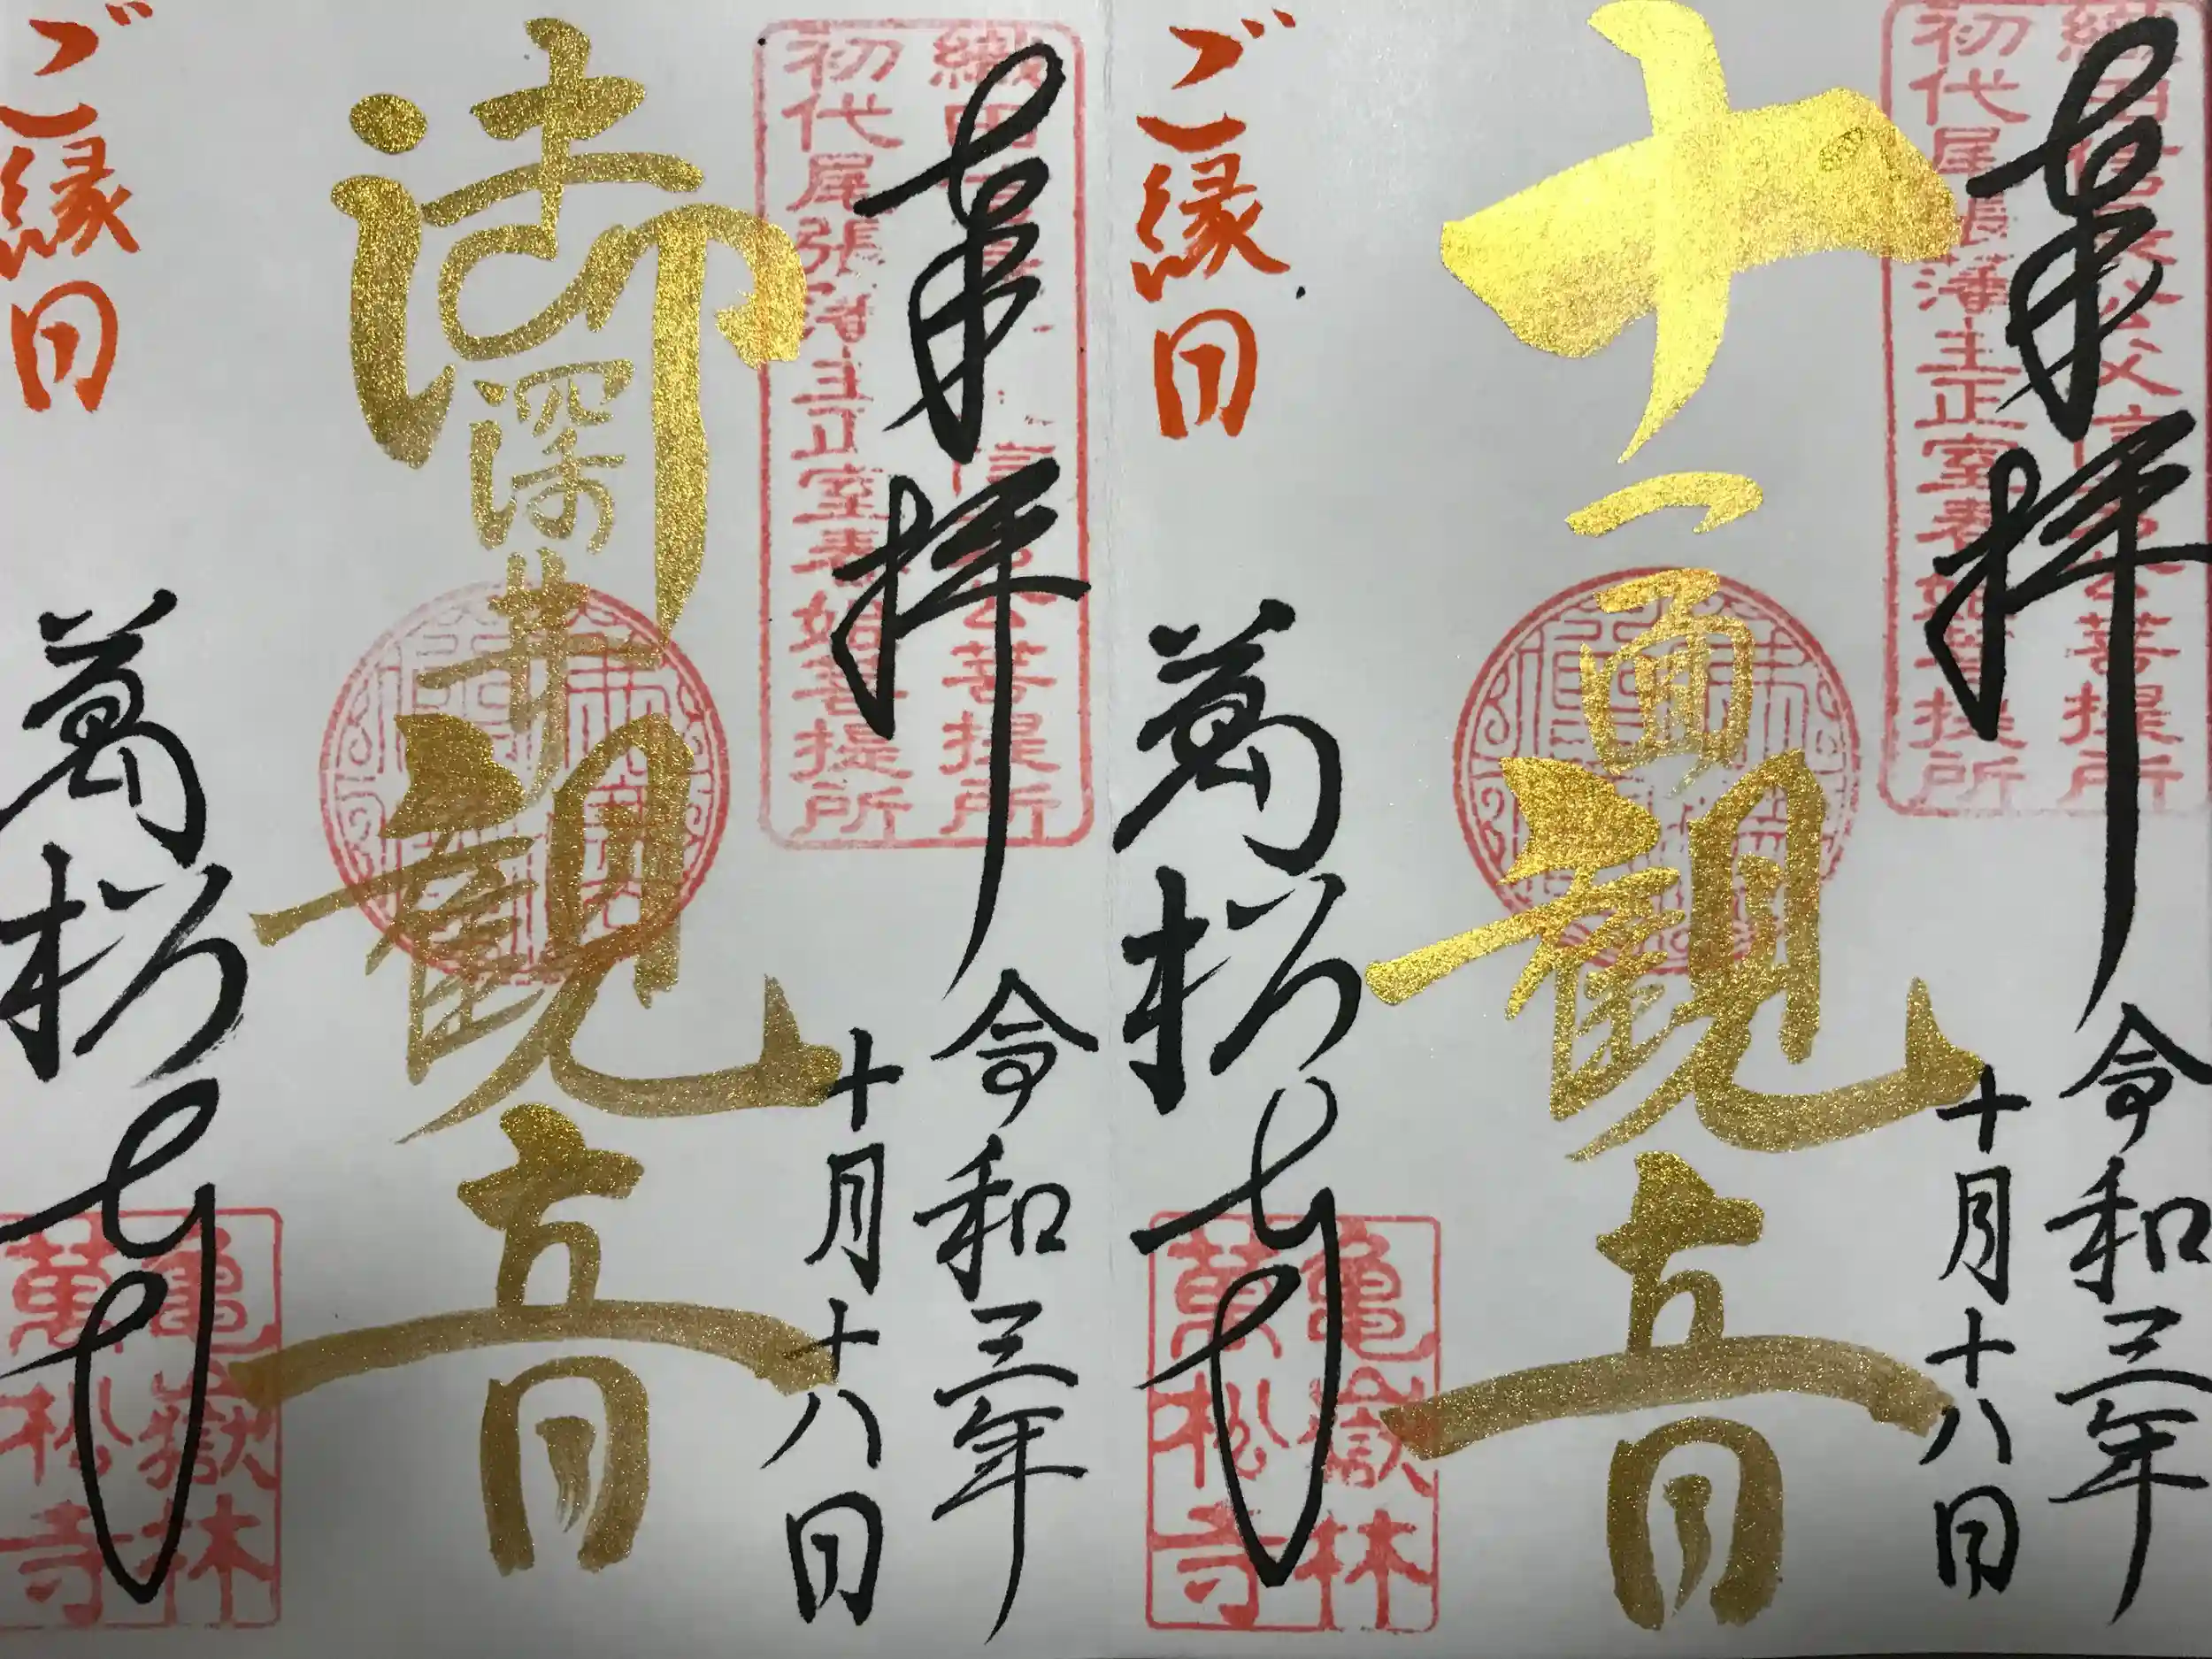 奉拝
令和三年
十月十八日
織田信長公父信秀公菩提所
初代尾張藩主正室春姫菩提所
十一面観音
ご縁日
萬松寺
亀嶽林
萬松寺
奉拝
令和三年
十月十八日
初代尾張藩主正室春姫菩提所
御深井観音
ご縁日
萬松寺
亀嶽林
萬松寺